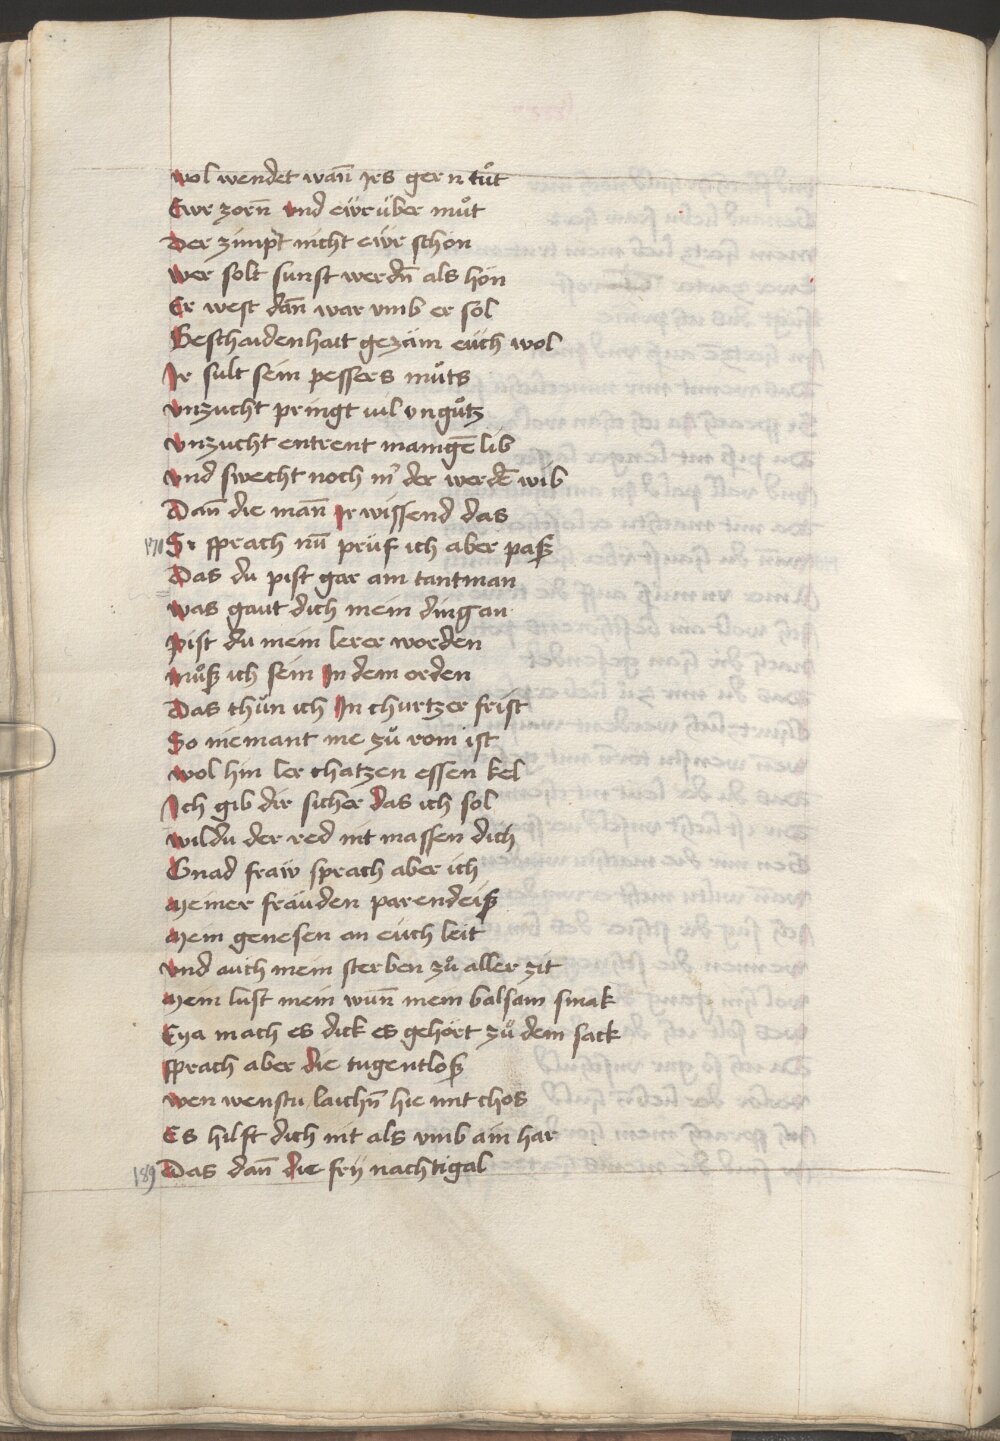 wol wendet wan̄ irs gern tuͦt
Ewr zorn̄ vnd ewr über muͦt
Der zimpt nicht ewr schön
wer solt sunst werdn̄ als hön
Er west dan̄ war vmb er sol
Beschaidenhait gezäm euch wol
Ir sult sein pessers muͦts
vnzucht pringt vil vnguͦtz
vnzucht entrent manigē lib
vnd swecht noch mˀ der werdē wib
Dan̄ die man̄ Ir wissend das
170 Si sprach nū prüf ich aber pasz
Das du pist gar ain tantman
was gaut dich mein ding an
pist du mein lerer worden
muͦsz ich sein In dem orden
Das thuͦn ich In churtzer frist
So niemant me zuͦ rom ist
wol hin ler chatzen essen kel
Ich gib dir sicher das ich sol
wildu der red nit massen dich
Gnad fraw sprach aber ich
Meiner fräuden parendeisz
Mein genesen an euch leit
vnd auch mein sterben zuͦ aller zit
Mein lust mein wun̄ mein balsam smak
Eya mach es dick es gehört zuͦ dem sack
sprach aber die tugentlosz
wen wenstu laichn̄ hie mit chos
Es hilft dich nit als vmb ain har
189 Das dan̄ die frij nachtigal